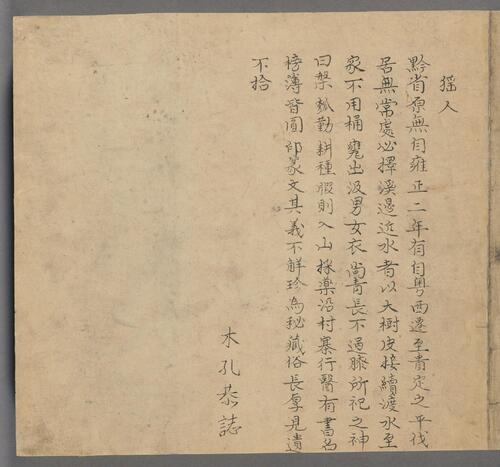 猺人
黔省原無自雍正二年有自粵西遷至貴定之平伐
居無常處必擇溪邉近水者以大樹皮接續渡水至
家不用桶甕出汲男女衣尚青長不過膝所祀之神
曰槃瓠勤耕種暇則入山採藥沿村寨行醫有書名
榜薄皆圓印篆文其義不解珍為秘藏俗長厚見遺
不拾
木孔恭誌